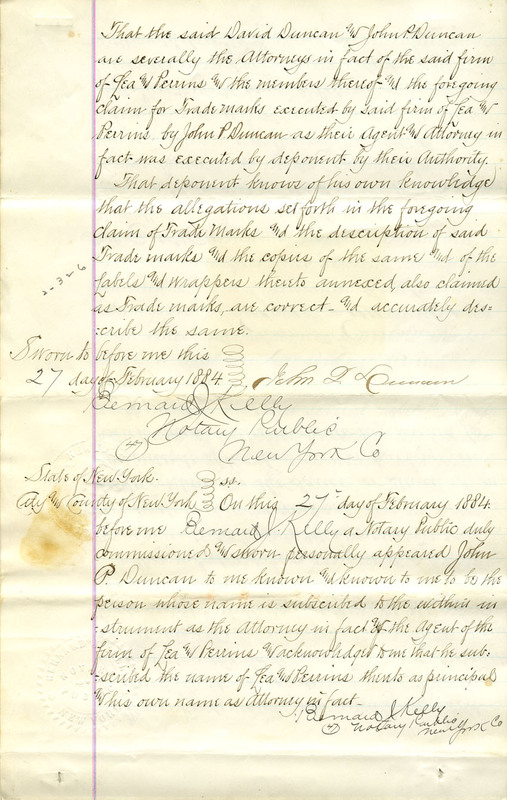 That the said David Duncan & John P Duncan
are severally the Attorneys in fact of the said firm
of Lea & Perrins & the members thereof and the foregoing
claim for Trade marks executed by said firm of Lea &
Perrins by John P Duncan as their Agent & Attorney in
fact was executed by deponent by their Authority.
That deponent knows of his own knowledge
that the allegations set forth in the foregoing
claim of Trade Marks and the description of said
Trade marks and the copies of the same and of the
labels and wrappers thereto annexed, also claimed
as Trade marks, are correct and accurately des=
=cribe the same.
2-3-26
Sworn to before me this
27 day of February 1884
John P. Duncan
Bernard J Kelly
Notary Public
(7)
New York Co
State of New York.
City & County of New York ss.
On this 27" day of February 1884
before me Bernard J. Kelly a Notary Public duly
commissioned & sworn personally appeared John
P. Duncan to me known and known to me to be the
person whose name is subscribed to the within in
=strument as the Attorney in fact & the Agent of the
firm of Lea & Perrins & acknowledged to me that he sub-
=scribed the name of Lea & Perrins thereto as principal
& his own name as Attorney in fact-
Bernard J Kelly
(7) Notary Public
New York Co